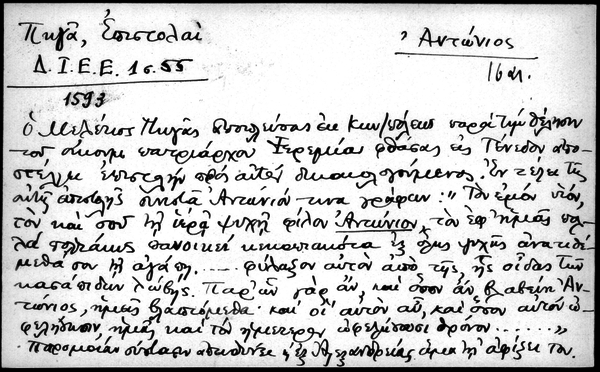 Πηγᾶ, Ἐπιστολαὶ
Ἀντώνιος
Δ.Ι.Ε.Ε. 1σ. 55
16 αι.
1593
ὁ Μελέτιος Πηγᾶς ἐκ Κων/πόλεως παρὰ τὴν θέλησιν
τοῦ οἰκουμ. πατριάρχου Ἱερεμίου φθάσας εἰς Τένεδον ἀπο-
στέλλει ἐπιστολὴν πρὸς αὐτὸν δικαιολογούμενος. Ἐν τέλει τῆς
αὐτῆς ἐπιστολῆς συνιστᾶ Ἀντώνιόν τινα γράφων: " Τὸν ἐμὸν υἱόν,
τὸν καὶ σοῦ τῇ ἱερᾷ ψυχῇ φίλον Ἀντώνιον, τὸν ἐφ' ἡμᾶς πολ-
λὰ πολλάκις πανοικεὶ κεκοπιακότα ἐξ ὅλης ψυχῆς ἀνατιθέ-
μεθά σου τῇ ἀγάπῃ ..... φύλαξον αὐτὸν ἀπὸ τῆς, ἧς οἶδας τῶν
λώβης. Παρ' ὧν γὰρ ἄν, καὶ ὅσον ἂν βλαβείη Ἀν-
τώνιος, ἡμεῖς βλαπτόμεθα· καὶ οἱ αὐτὸν αὖ, καὶ ὅσον αὐτὸν ὠ-
φελήσωσιν, ἡμᾶς καὶ τὸν ἡμέτερον ὠφελήσωσι θρόνον ......."
Παρομοίαν σύστασιν ἀπευθύνει ἐξ Ἀλεξανδρείας ἅμα τῇ ἀφίξει του.